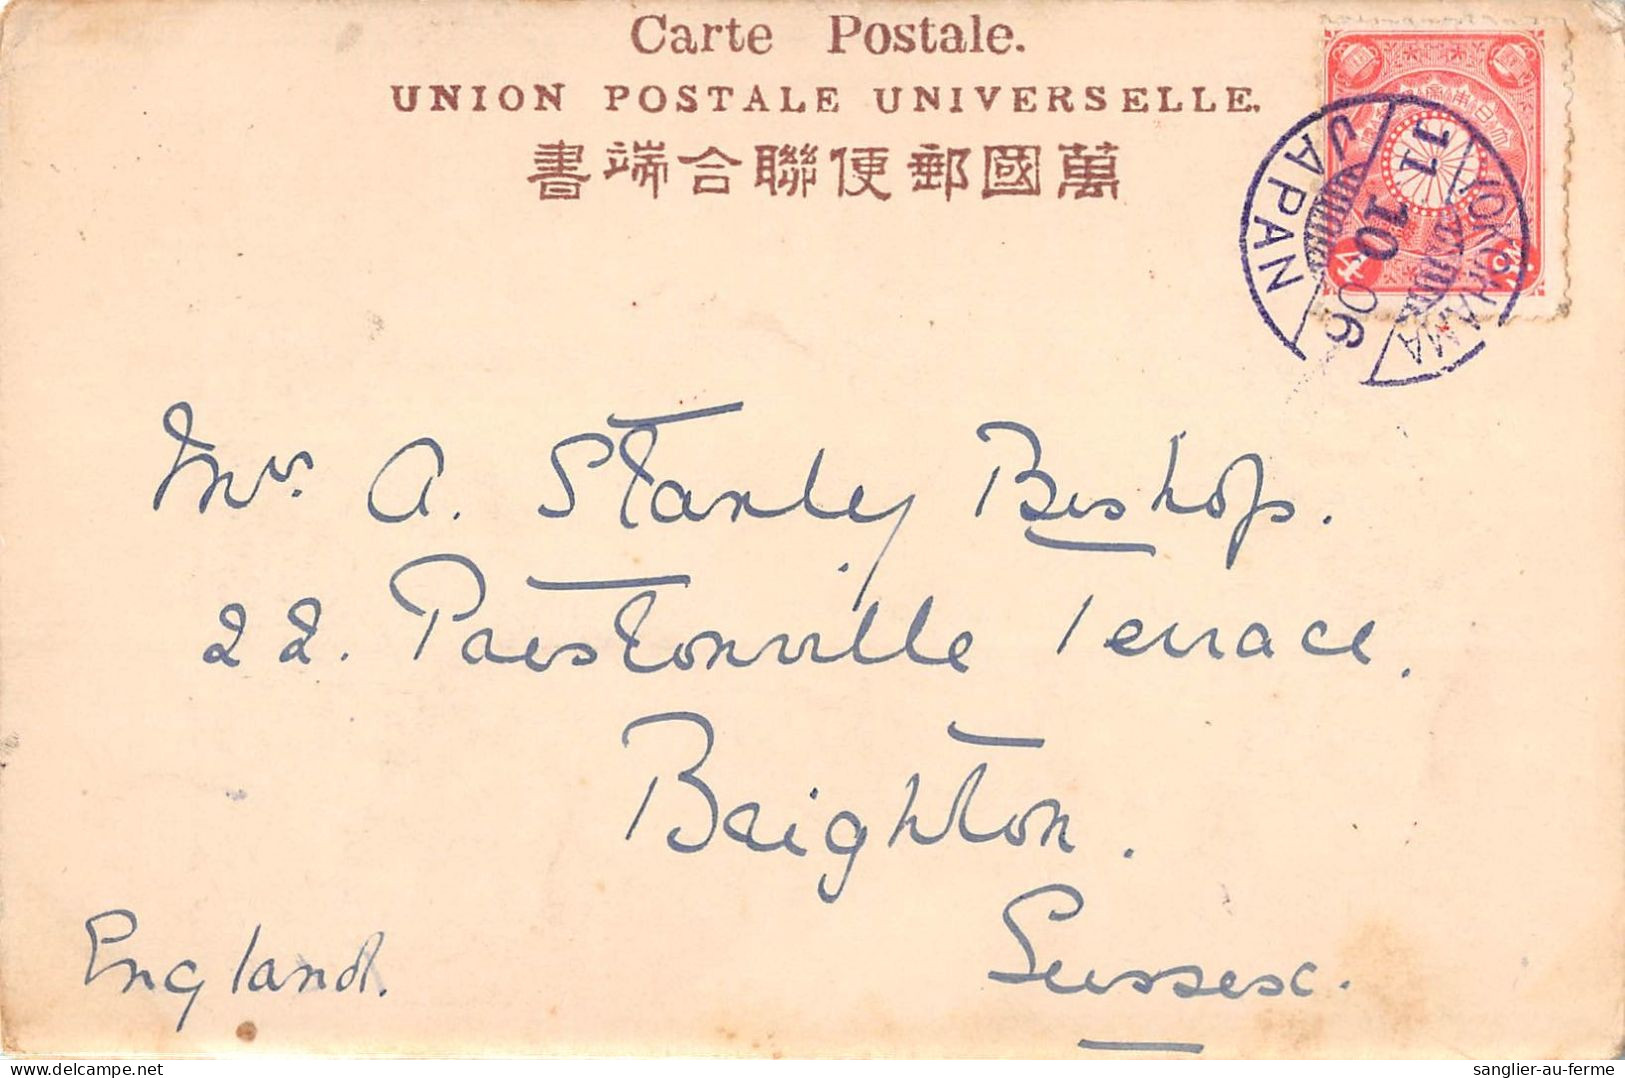 Carte Postale.
UNION POSTALE UNIVERSELLE.
書端合聯便郵國萬
YOKOHAMA
11 10 06
JAPAN
4
Mrs. A. Stanley Bishop.
22. Prestonville Terrace.
Brighton.
Sussex.
England.
sanglier-au-ferme